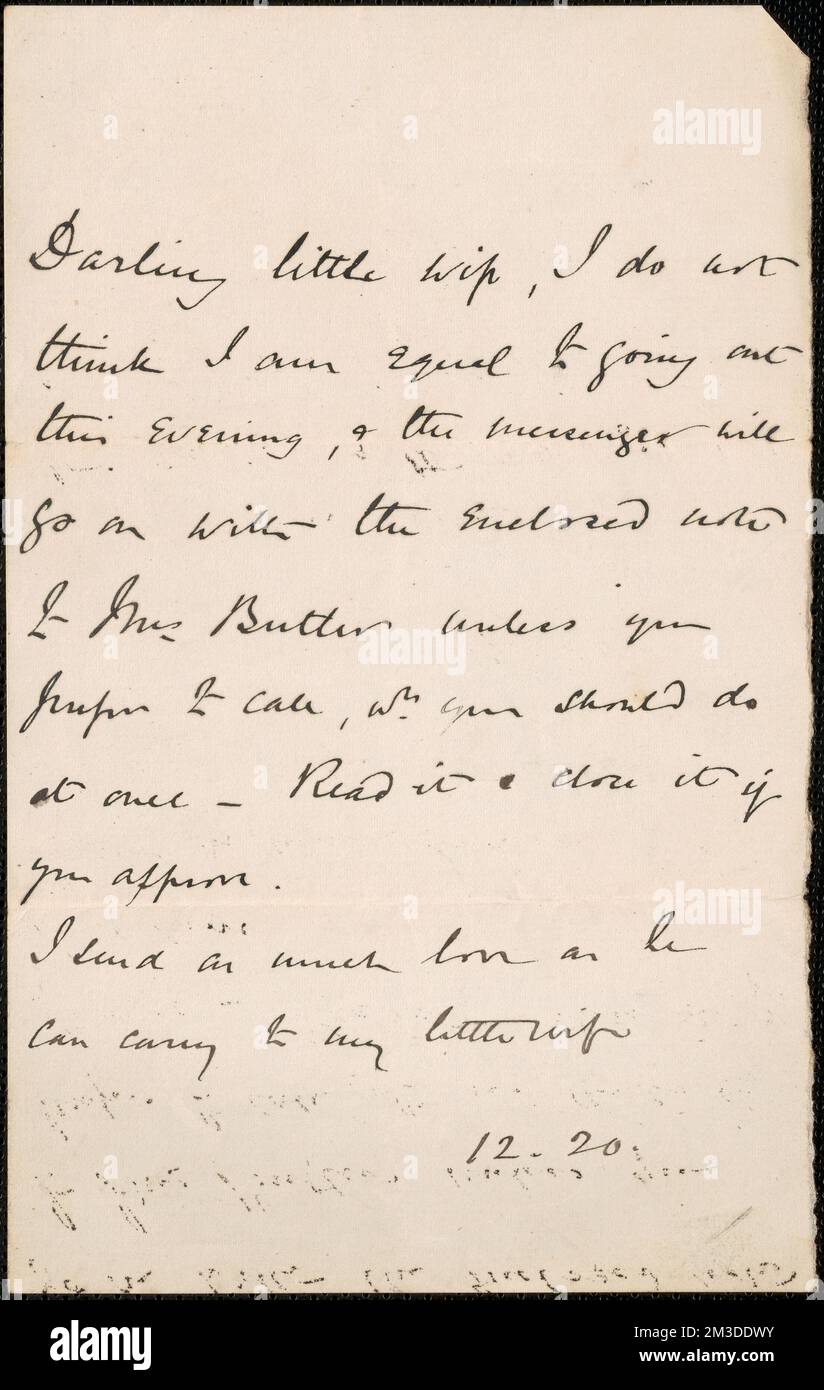 Darling little wife, I do not
think I am equal to going out
this evening, & the messenger will
go on with the enclosed note
to Mrs Butler unless you
prefer to call, wh. you should do
at once – Read it & close it if
you approve.
I send as much love as he
can carry to my little wife
12. 20.
alamy
Image ID: 2M3DDWY
www.alamy.com